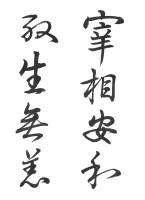 宰相安和
殃生無恙